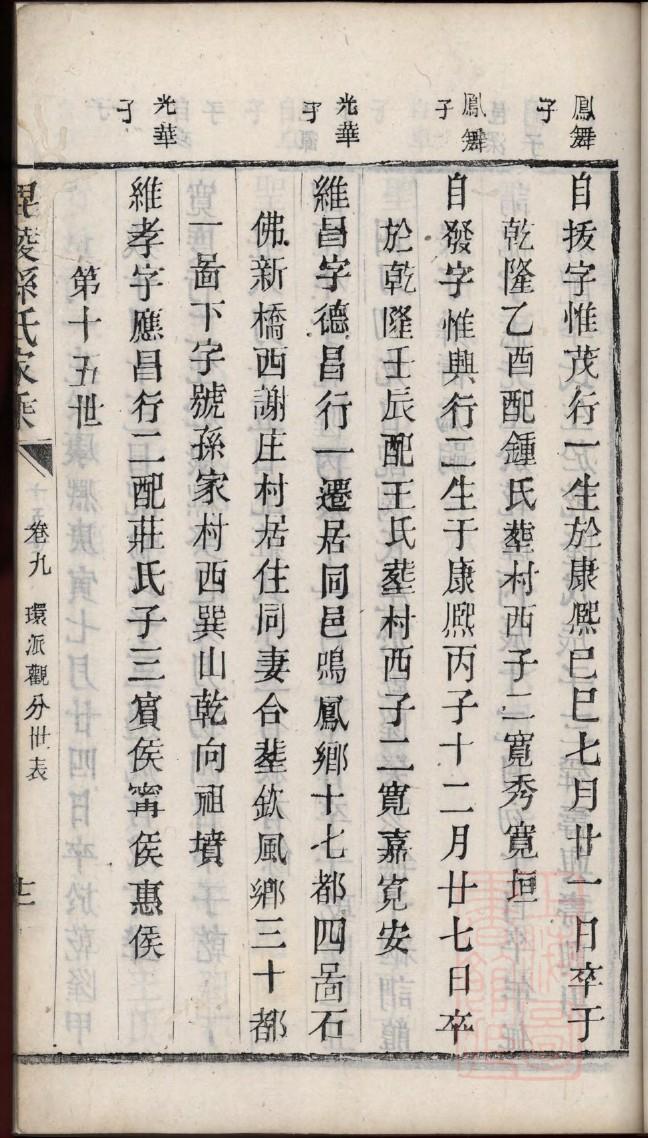 鳳舞子
自㧞字惟茂行一生於康熙己巳七月廿一日卒于
乾隆乙酉配鍾氏塟村西子二寛秀寛垣
鳳舞子
自發字惟興行二生于康熙丙子十二月廿七日卒
於乾隆壬辰配王氏塟村西子二寛嘉寛安
光華子
維昌字德昌行一遷居同邑鳴鳳鄉十七都四啚石
佛新橋西謝庄村居住同妻合塟欽風鄉三十都
一啚下字號孫家村西巽山乾向祖墳
光華子
維孝字應昌行二配莊氏子三賔侯甯侯惠侯
第十五世
毘陵孫氏家乘
卷九 環派觀分世表